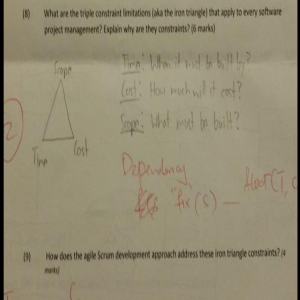 (8) What are the triple constraint limitations (aka the iron triangle) that apply to every software
project management? Explain why are they constraints? (6 marks)
Time: When it must be built by?
Scope
Cost: How much will it cost?
Scope: What must be built?
2
Time
Cost
Dependency
"fix(S) —
(9) How does the agile Scrum development approach address these iron triangle constraints? (4
marks)